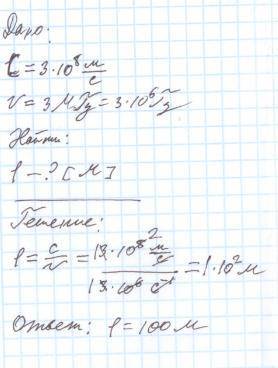 Дано:
c = 3·10⁸ м/с
ν = 3 МГц = 3·10⁶ Гц
Найти:
λ – ? [м]
Решение:
λ = c/ν = (3·10⁸ м/с)/(3·10⁶ с⁻¹) = 1·10² м
Ответ: λ = 100 м